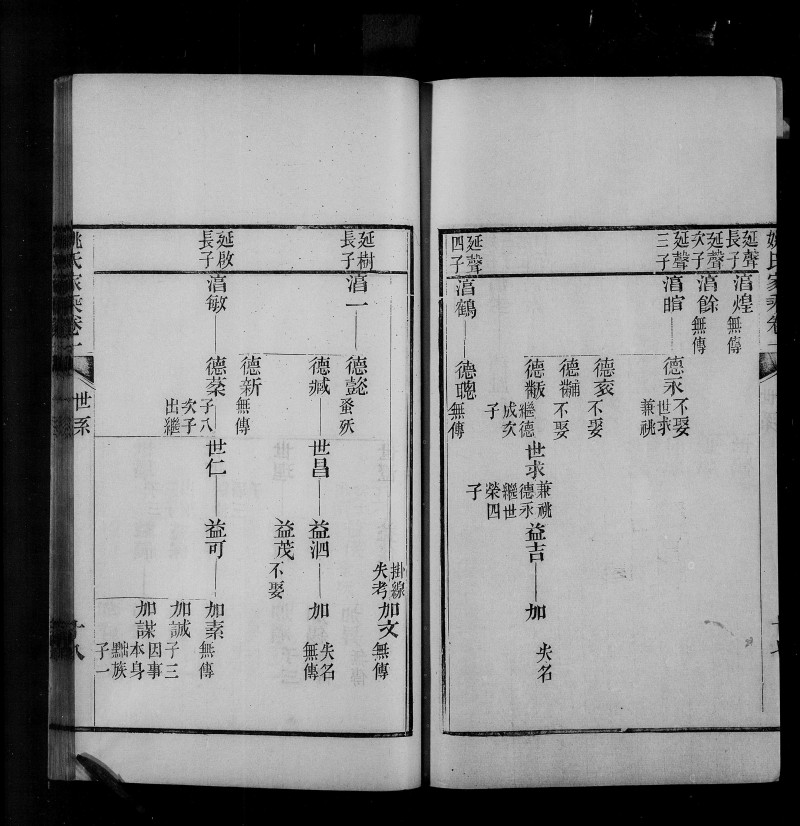 姚氏家乘卷一
延聲長子 湻煌 無傳
延聲次子 湻餘 無傳
延聲三子 湻暄 德永 不娶 世求兼祧
德袤 不娶
德黼 不娶
德黻 繼德成次子 世求 兼祧德永 繼世榮四子 益吉 加 失名
延聲四子 湻鶴 德聰 無傳
掛線失考 加文 無傳
延樹長子 湻一 德懿 蚤殀
德臧 世昌 益泗 加 失名無傳
益茂 不娶
德新 無傳
延啟長子 湻敏 德棻 子八 次子出繼 世仁 益可 加素 無傳
加誠 子三
加謀 因事本身黜族 子一
姚氏家乘卷一 世系 十八